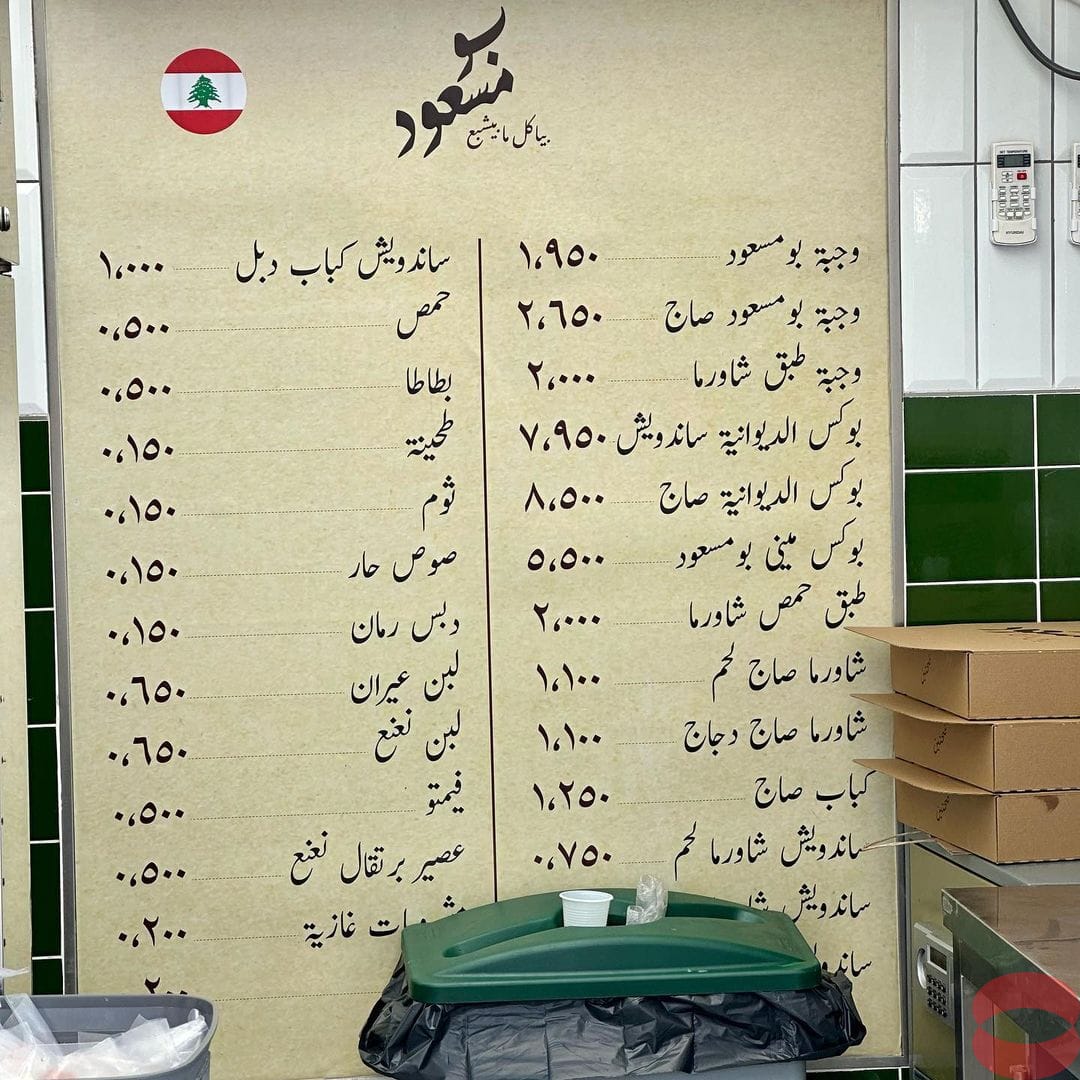 بو
مسعود
بياكل ما بيشبع
وجبة بومسعود ١،٩٥٠
وجبة بومسعود صاج ٢،٦٥٠
وجبة طبق شاورما ٢،٠٠٠
بوكس الديوانية ساندويش ٧،٩٥٠
بوكس الديوانية صاج ٨،٥٠٠
بوكس ميني بومسعود ٥،٥٠٠
طبق حمص شاورما ٢،٠٠٠
شاورما صاج لحم ١،١٠٠
شاورما صاج دجاج ١،١٠٠
كباب صاج ١،٢٥٠
ساندويش شاورما لحم ٠،٧٥٠
ساندويش
ساندويش كباب دبل ١،٠٠٠
حمص ٠،٥٠٠
بطاطا ٠،٥٠٠
طحينة ٠،١٥٠
ثوم ٠،١٥٠
صوص حار ٠،١٥٠
دبس رمان ٠،١٥٠
لبن عيران ٠،٦٥٠
لبن نعنع ٠،٦٥٠
فيمتو ٠،٥٠٠
عصير برتقال نعنع ٠،٥٠٠
غازية ٠،٢٠٠
HYUNDAI